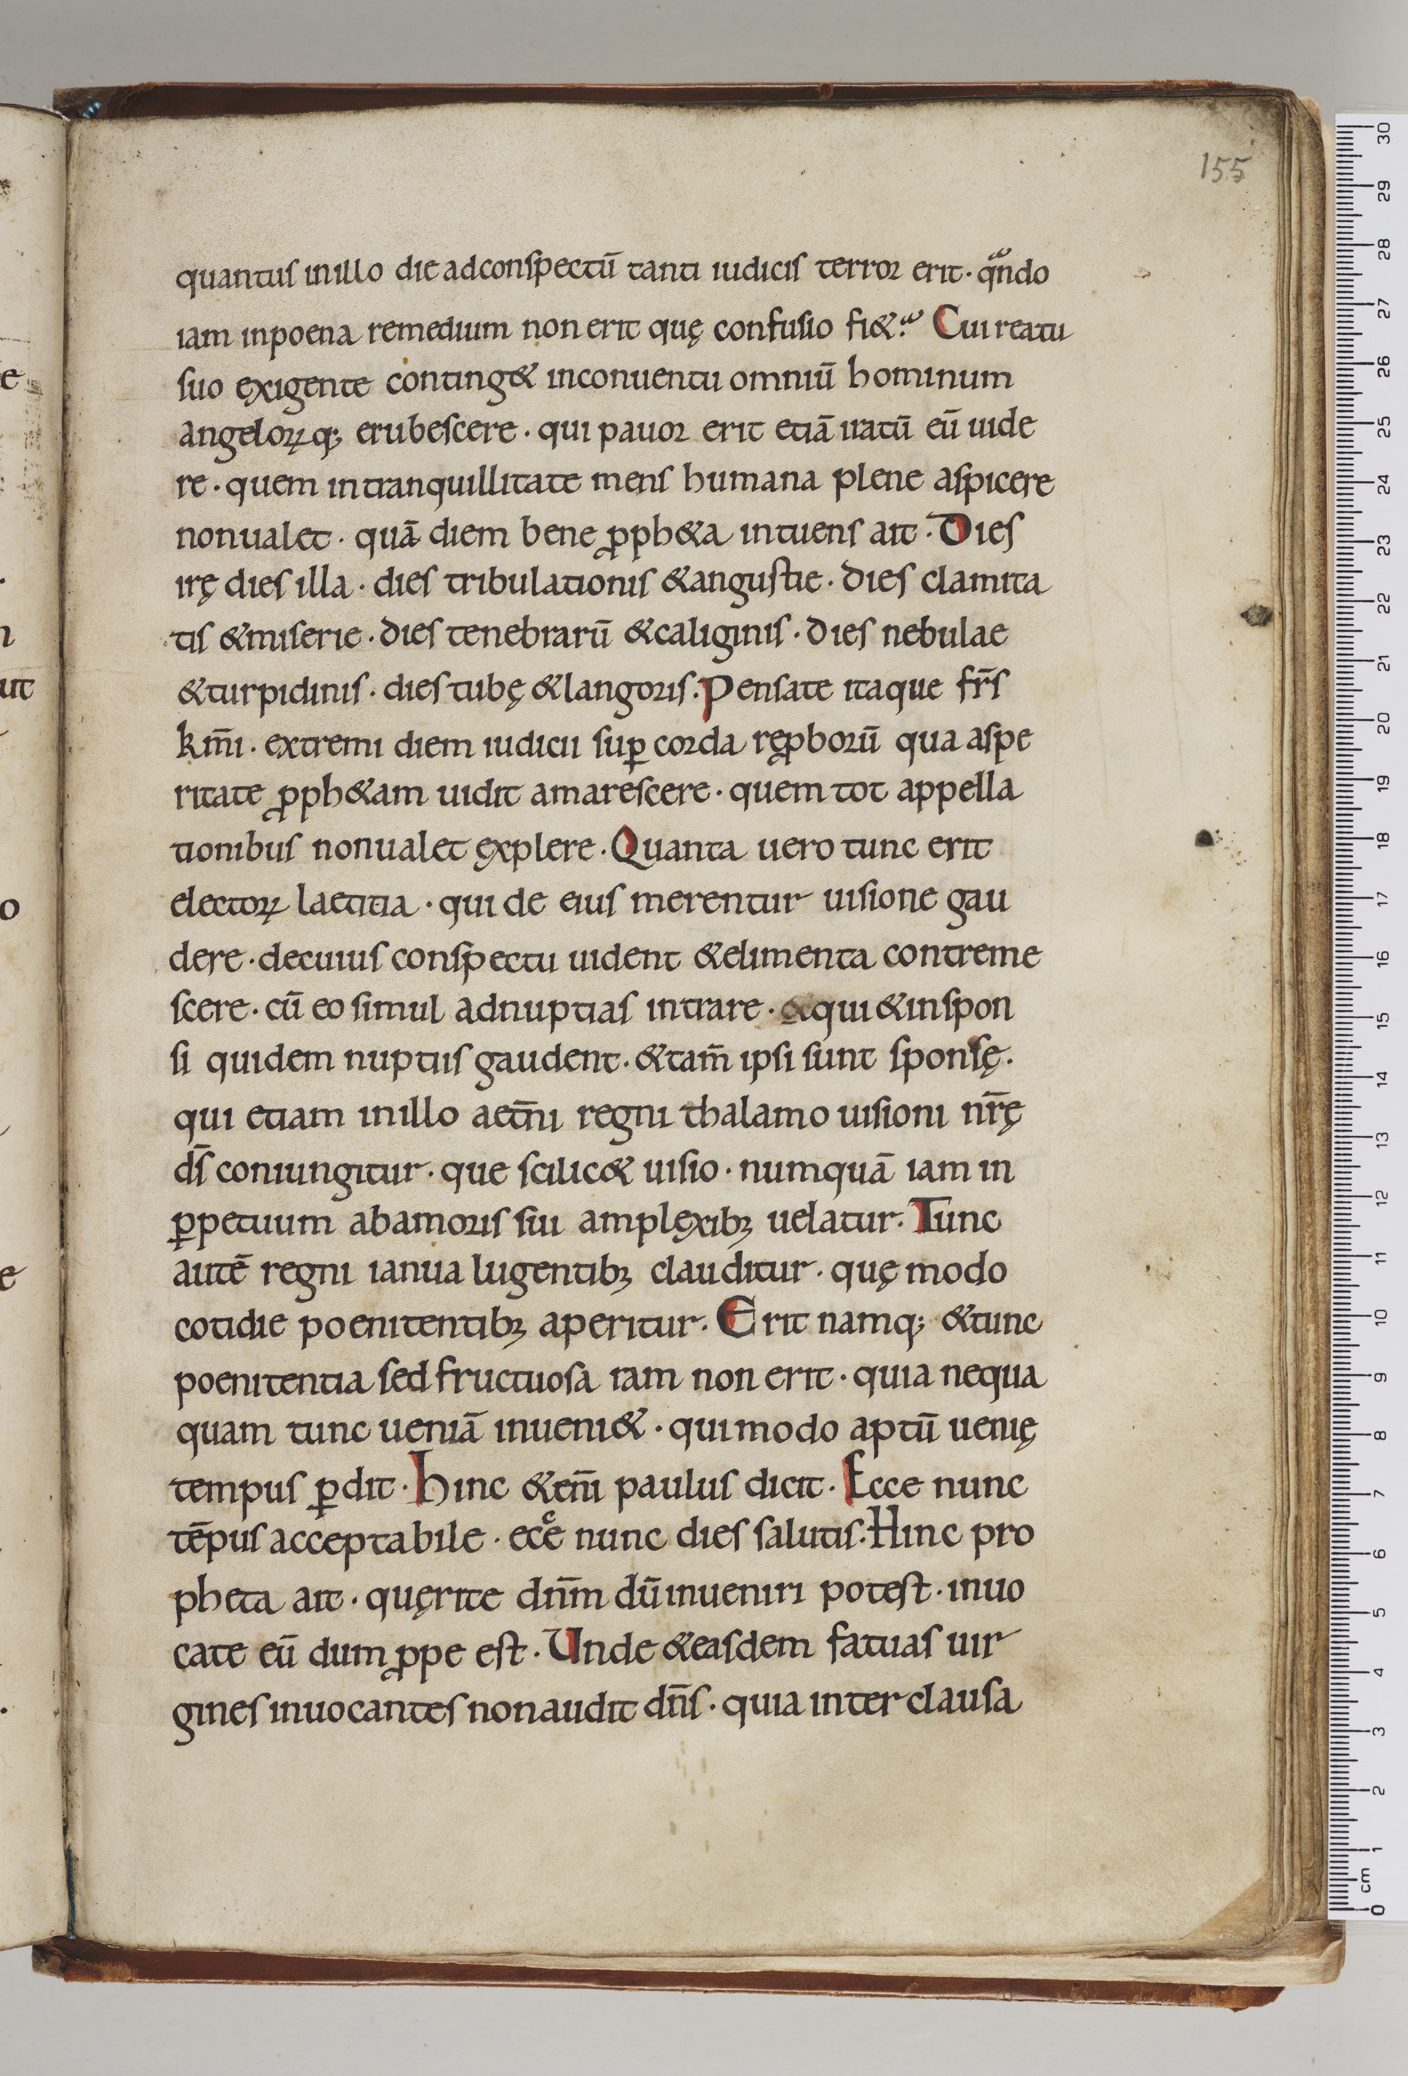 155
quantus inillo die adconspectū tanti iudicis terror erit · qͣndo
iam inpoena remedium non erit quę confusio fi& · Cui reatu
suo exigente conting& inconuentu omniū hominum
angeloꝝq; erubescere · qui pauor erit etiā iratū eū uide
re · quem intranquillitate mens humana plene aspicere
nonualet · quā diem bene ꝓph&a intuens ait · Dies
irę dies illa · dies tribulationis &angustie · dies clamita
tis &miserie · dies tenebrarū &caliginis · dies nebulae
&turpidinis · dies tubę &langoris · Pensate itaque fr̄s
km̄i · extremi diem iudicii suꝑ corda ręꝓborū qua aspe
ritate ꝓph&am uidit amarescere · quem tot appella
tionibus nonualet explere · Quanta uero tunc erit
electoꝝ laetitia · qui de eius merentur uisione gau
dere · decuius conspectu uident &elimenta contreme
scere · cū eo simul adnuptias intrare · &qui &inspon
si quidem nuptiis gaudent · &tam̄ ipsi sunt sponsę ·
qui etiam inillo aet̄ni regni thalamo uisioni nr̄ę
ds̄ coniungitur · que scilic& uisio · numquā iam in
ꝑpetuum abamoris sui amplexibꝫ uelatur · Tunc
autē regni ianua lugentibꝫ clauditur · quę modo
cotidie poenitentibꝫ aperitur · Erit namq; &tunc
poenitentia sed fructuosa iam non erit · quia nequa
quam tunc ueniā inueni& · qui modo aptū uenię
tempus ꝑdit · Hinc &eni̅ paulus dicit · Ecce nunc
tēpus acceptabile · ecce nunc dies salutis · Hinc pro
pheta ait · quęrite dn̄m dū inueniri potest · inuo
cate eū dum ꝓpe est · Unde &easdem fatuas uir
gines inuocantes nonaudit dn̄s · quia inter clausa